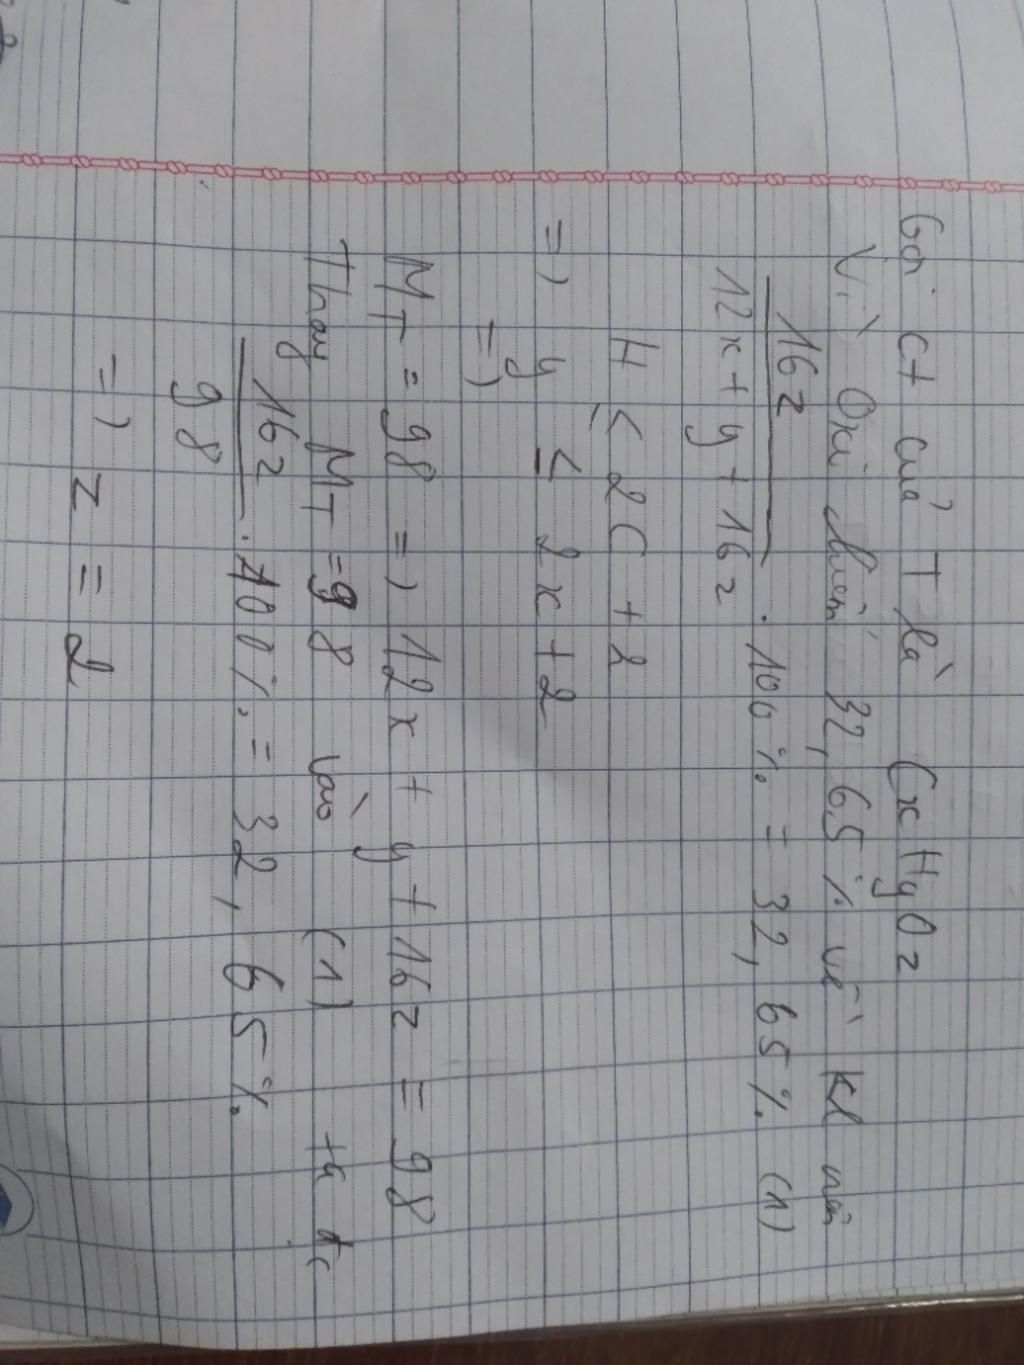 Gọi ct của T là CxHyOz
Vì Oxi chiếm 32,65% về kl nên
16z
12x + y + 16z . 100% = 32,65% (1)
H ≤ 2C + 2
=) y ≤ 2x + 2
=)
MT = 98 =) 12x + y + 16z = 98
Thay MT = 98 vào (1) ta đc
16z
98 . 100% = 32,65%
=) z = 2